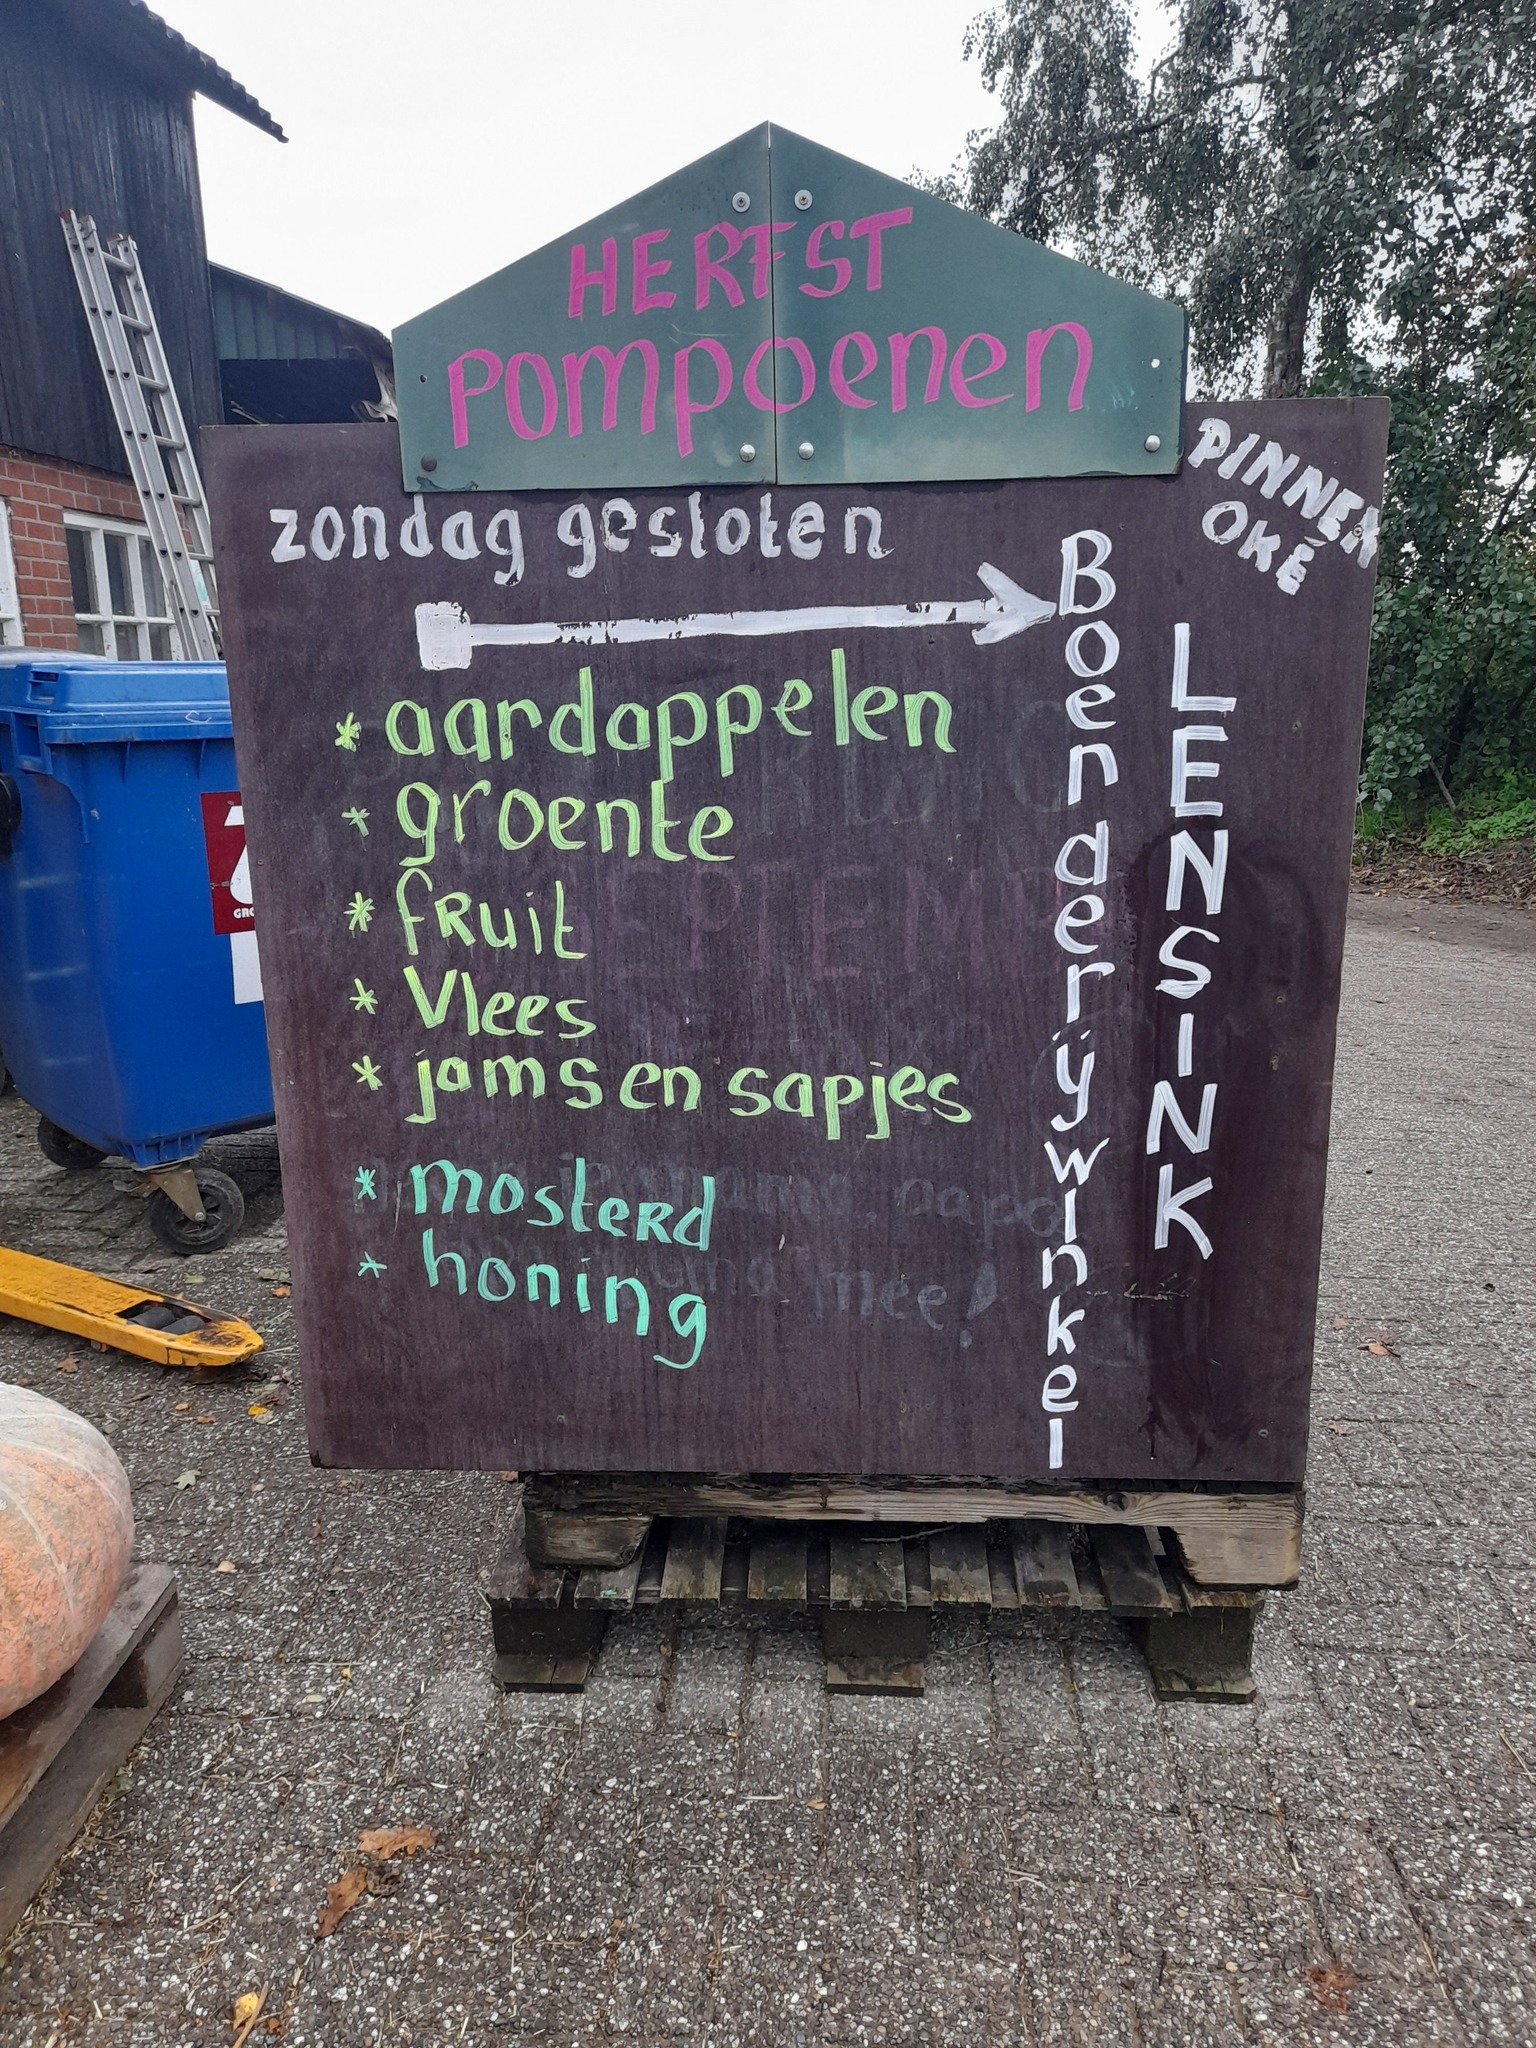 HERFST
POMPOENEN
PINNEN
OKÉ
zondag gesloten
* aardappelen
* groente
* fruit
* Vlees
* jams en sapjes
* mosterd
* honing
Boenderijwinkel
LENSINK